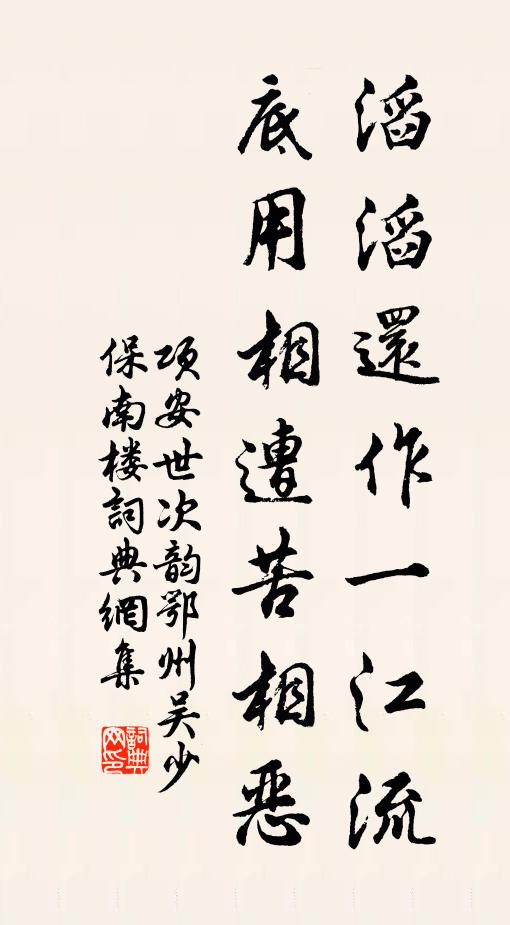 滔滔還作一江流
底用相遭苦相惡
项安世次韵鄂州吴少
保南楼詞典網集
詞典网印